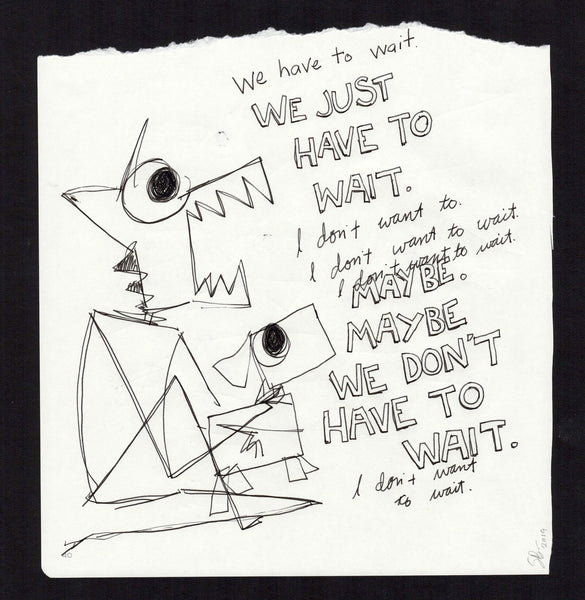 we have to wait.
WE JUST
HAVE TO
WAIT.
I don't want to.
I don't want to wait.
I don't want to wait.
MAYBE.
MAYBE
WE DON'T
HAVE TO
WAIT.
I don't want
to wait.
2019